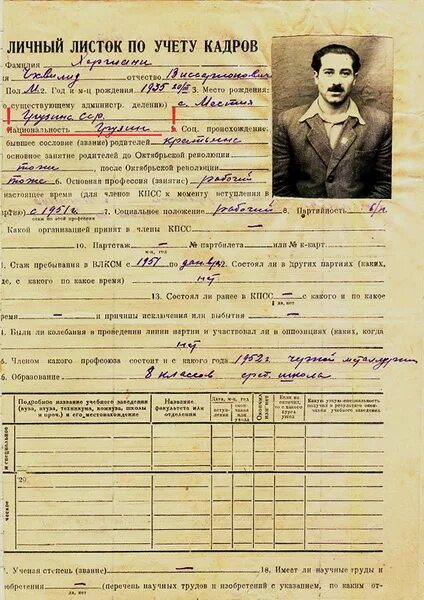 ЛИЧНЫЙ ЛИСТОК ПО УЧЕТУ КАДРОВ
Фамилия Хергиани
я Чхвилид отчество Виссарионович
Пол М. 2. Год и м-ц рождения 1935 3. Место рождения:
о существующему администр. делению) с. Местия
Грузинс сср.
Национальность Грузин 5. Соц. происхождение:
бывшее сословие (звание) родителей крестьяне
основное занятие родителей до Октябрьской революции
тоже, после Октябрьской революции
тоже 6. Основная профессия (занятие) рабочий
настоящее время (для членов КПСС к моменту вступления в
артию) с 1951 г. 7. Социальное положение рабочий 8. Партийность б/п
стаж по этой профессии
. Какой организацией принят в члены КПСС —
10. Партстаж — № партбилета — или № к-карт.
м-ц, год
. Стаж пребывания в ВЛКСМ с 1951 Состоял ли в других партиях (каких,
де, с какого по какое время) нет
13. Состоял ли ранее в КПСС — с какого и по какое
да, нет
время — и причины исключения или выбытия —
4. Были ли колебания в проведении линии партии и участвовал ли в оппозициях (каких, когда
нет
5. Членом какого профсоюза состоит и с какого года 1952 г. черной металлургии
6. Образование 8 классов школа
Подробное название учебного заведения (вуза, втуза, техникума, комвуза, школы и проч.) и его местонахождение
Название факультета или отделения
Дата, м-ц, год
вступления
окончания или ухода
Окончил или нет
Если не окончил, то с какого курса ушел
Какую узкую специальность получил в результате окончания учебного заведения
и специальное
20.
ческое
7. Ученая степень (звание) — 18. Имеет ли научные труды и
обретения — (перечень научных трудов и изобретений с указанием, по каким от-
да, нет